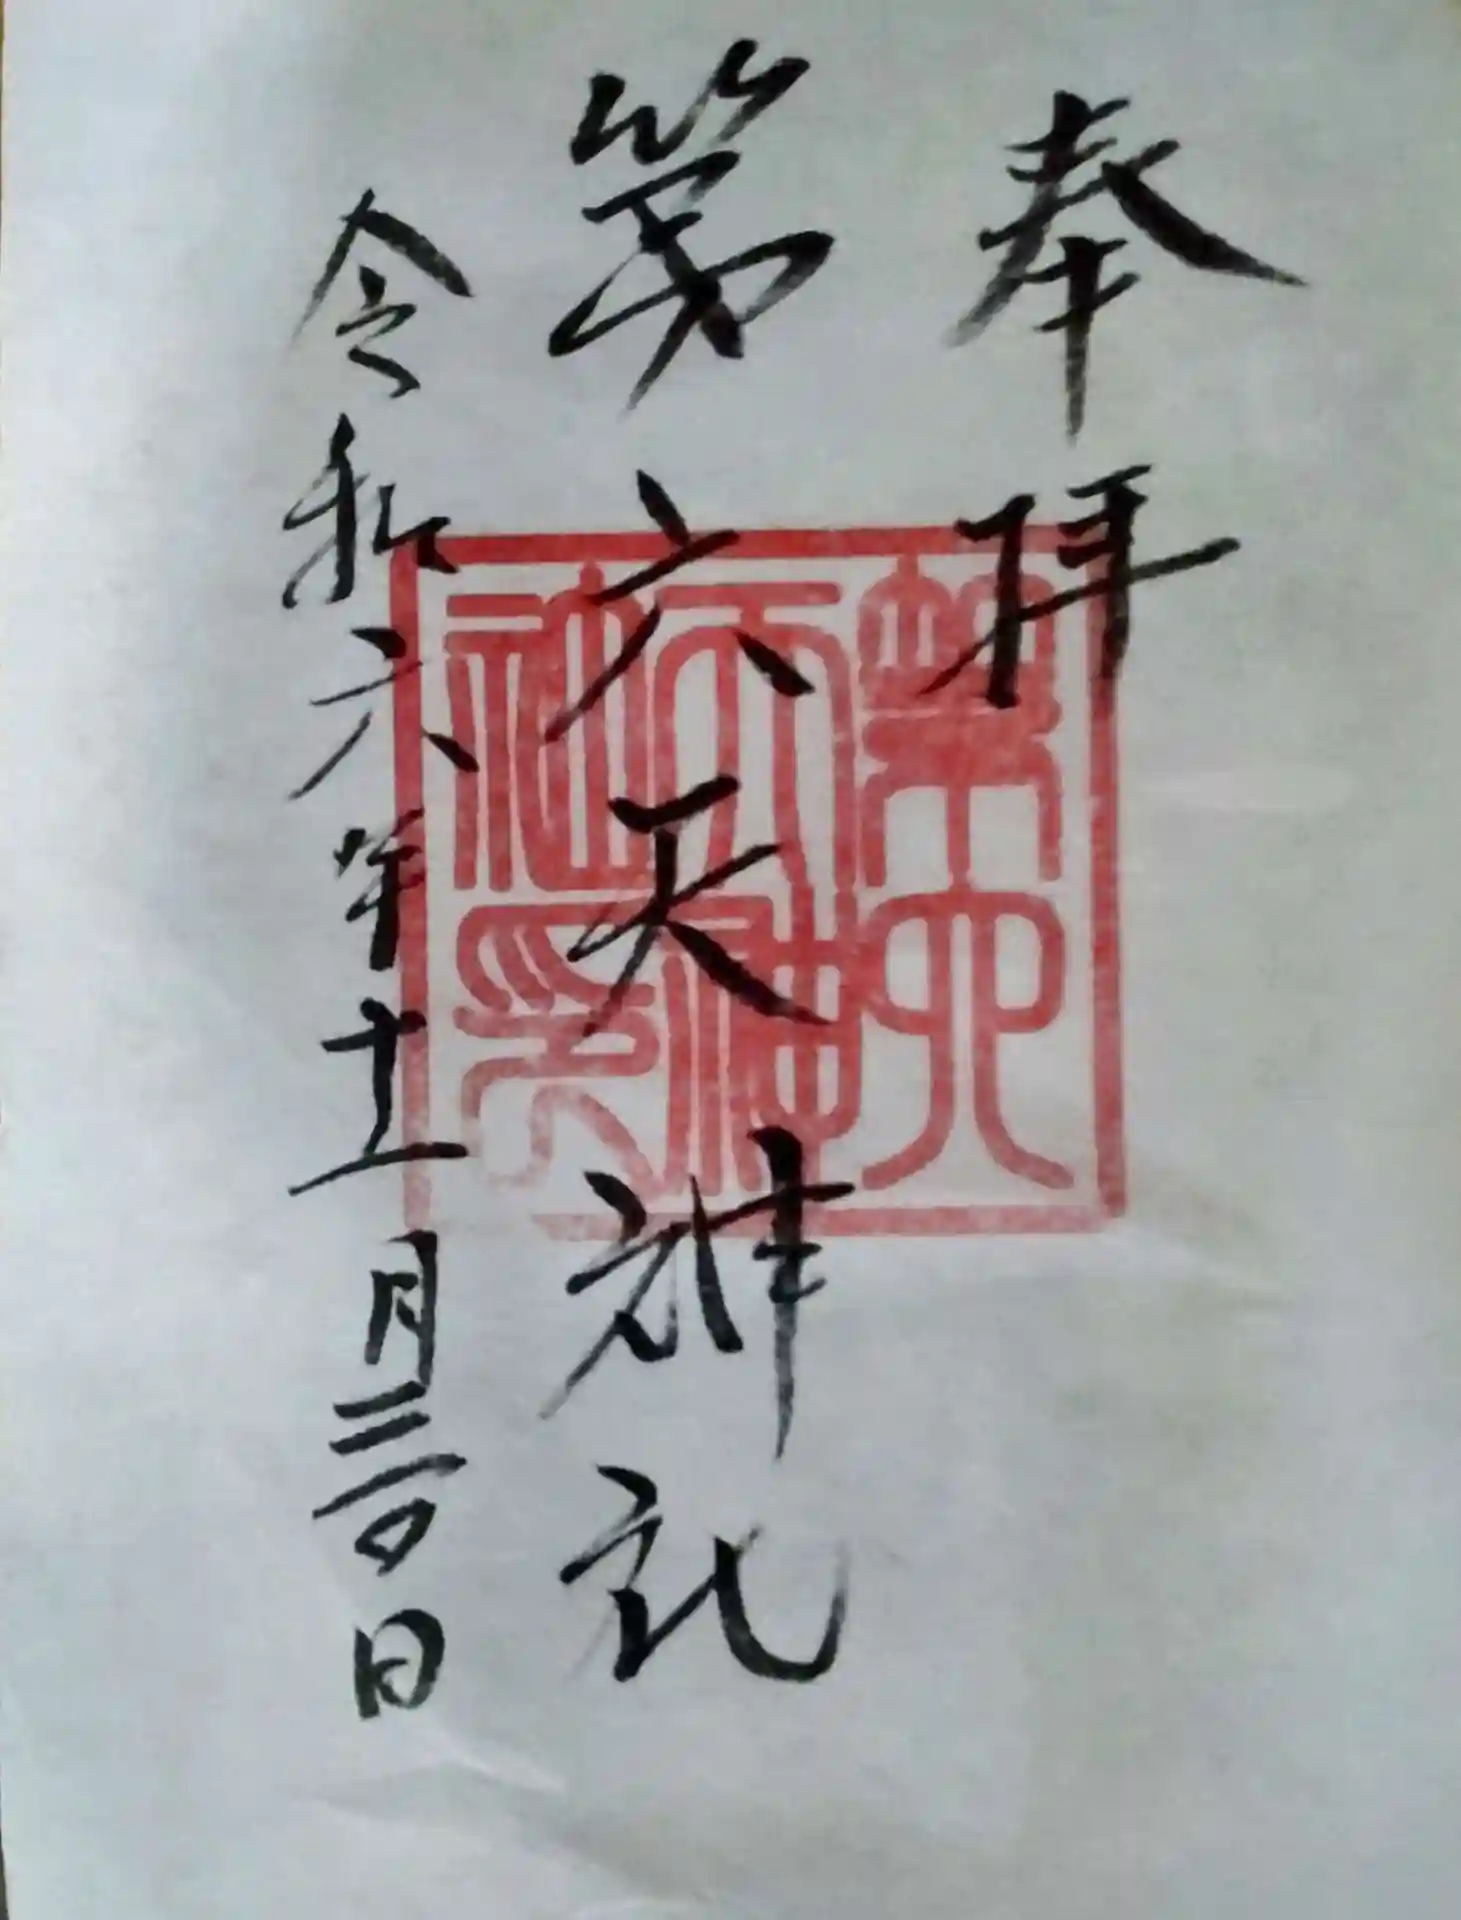 奉拝
第六天神社
令和六年十一月三〇日
第六
天神
社印